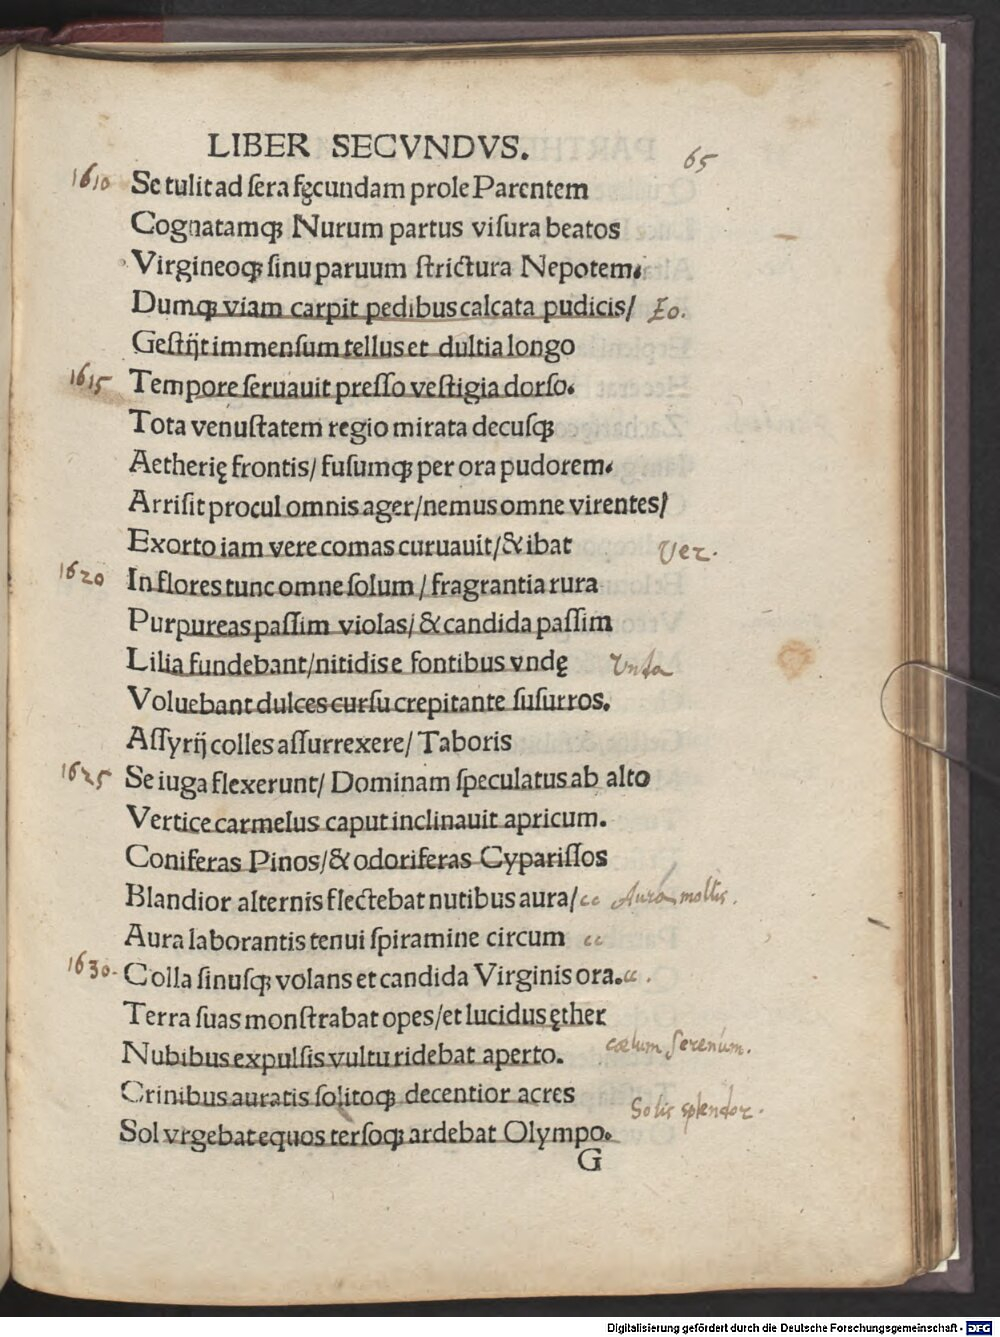 LIBER SECVNDVS.
65
1610 Se tulit ad sera fęcundam prole Parentem
Cognatamqꝫ Nurum partus visura beatos
Virgineoqꝫ sinu paruum strictura Nepotem.
Dumqꝫ viam carpit pedibus calcata pudicis/
Gestijt immensum tellus et dultia longo
1615 Tempore seruauit presso vestigia dorso.
Tota venustatem regio mirata decusqꝫ
Aetherię frontis/ fusumqꝫ per ora pudorem.
Arrisit procul omnis ager/nemus omne virentes/
Exorto iam vere comas curuauit/& ibat Ver.
1620 In flores tunc omne solum/ fragrantia rura
Purpureas passim violas/ & candida passim
Lilia fundebant/nitidis e fontibus vndę Vnda
Voluebant dulces cursu crepitante susurros.
Assyrij colles assurrexere/ Taboris
1625 Se iuga flexerunt/ Dominam speculatus ab alto
Vertice carmelus caput inclinauit apricum.
Coniferas Pinos/& odoriferas Cyparissos
Blandior alternis flectebat nutibus aura/ cc Aura mollis.
Aura laborantis tenui spiramine circum cc
1630. Colla sinusqꝫ volans et candida Virginis ora. cc.
Terra suas monstrabat opes/et lucidus ęther
Nubibus expulsis vultu ridebat aperto. cælum serenum.
Crinibus auratis solitoqꝫ decentior acres
Solis splendor.
Sol vrgebat equos tersoqꝫ ardebat Olympo.
G
Digitalisierung gefördert durch die Deutsche Forschungsgemeinschaft - DFG